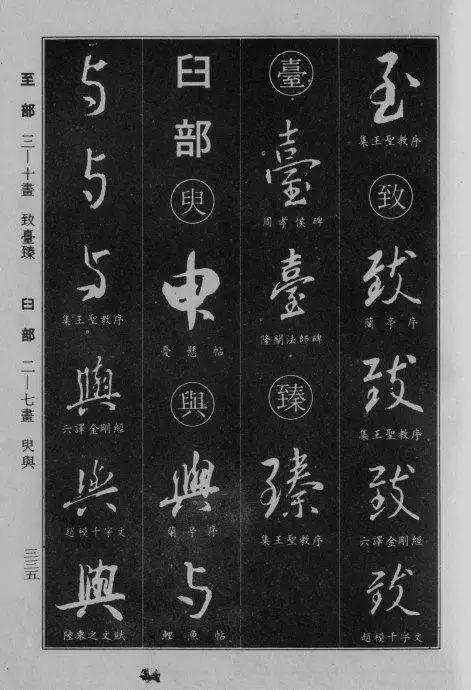 至部 三—十畫 致臺臻 臼部 二—七畫 臾與 三三五
至
集王聖教序
致
致
蘭亭序
致
集王聖教序
致
六譯金剛經
致
趙模千字文
臺
臺
周孝侯碑
臺
隆闡法師碑
臻
臻
集王聖教序
臼部
臾
臾
憂懸帖
與
與
蘭亭序
与
鯉魚帖
与
与
与
集王聖教序
與
六譯金剛經
與
趙模千字文
與
陸柬之文賦